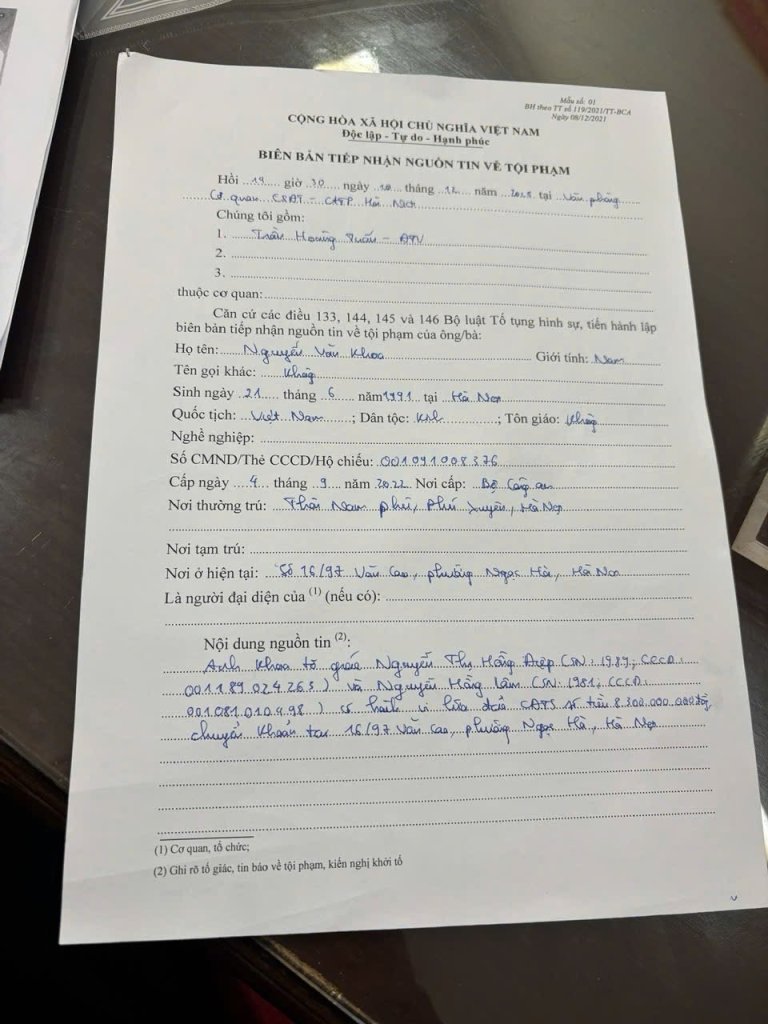 Mẫu số: 01
BH theo TT số 119/2021/TT-BCA
Ngày 08/12/2021
CỘNG HÒA XÃ HỘI CHỦ NGHĨA VIỆT NAM
Độc lập - Tự do - Hạnh phúc
BIÊN BẢN TIẾP NHẬN NGUỒN TIN VỀ TỘI PHẠM
Hồi 19 giờ 30 ngày 10 tháng 12 năm 2025 tại Văn phòng
Cơ quan CSĐT - CATP Hà Nội
Chúng tôi gồm:
1. Trần Hoàng Tuấn - ĐTV
2.
3.
thuộc cơ quan:
Căn cứ các điều 133, 144, 145 và 146 Bộ luật Tố tụng hình sự, tiến hành lập
biên bản tiếp nhận nguồn tin về tội phạm của ông/bà:
Họ tên: Nguyễn Văn Khoa Giới tính: Nam
Tên gọi khác: Không
Sinh ngày 21 tháng 6 năm 1991 tại Hà Nội
Quốc tịch: Việt Nam; Dân tộc: Kinh; Tôn giáo: Không
Nghề nghiệp:
Số CMND/Thẻ CCCD/Hộ chiếu: 001091008376
Cấp ngày 4 tháng 9 năm 2022 Nơi cấp: Bộ Công an
Nơi thường trú: Nam Phú, Phú Xuyên, Hà Nội
Nơi tạm trú:
Nơi ở hiện tại: Số 16/97 Văn Cao, phường Ngọc Hà, Hà Nội
Là người đại diện của (1) (nếu có):
Nội dung nguồn tin (2):
Anh Khoa tố giác Nguyễn Thị Hồng Điệp (SN: 1989; CCCD:
001189024263) và Nguyễn Hồng Lâm (SN: 1981; CCCD:
001081010498) có hành vi lừa đảo CĐTS số tiền 8.300.000.000đ,
chuyển khoản tại 16/97 Văn Cao, phường Ngọc Hà, Hà Nội
(1) Cơ quan, tổ chức;
(2) Ghi rõ tố giác, tin báo về tội phạm, kiến nghị khởi tố